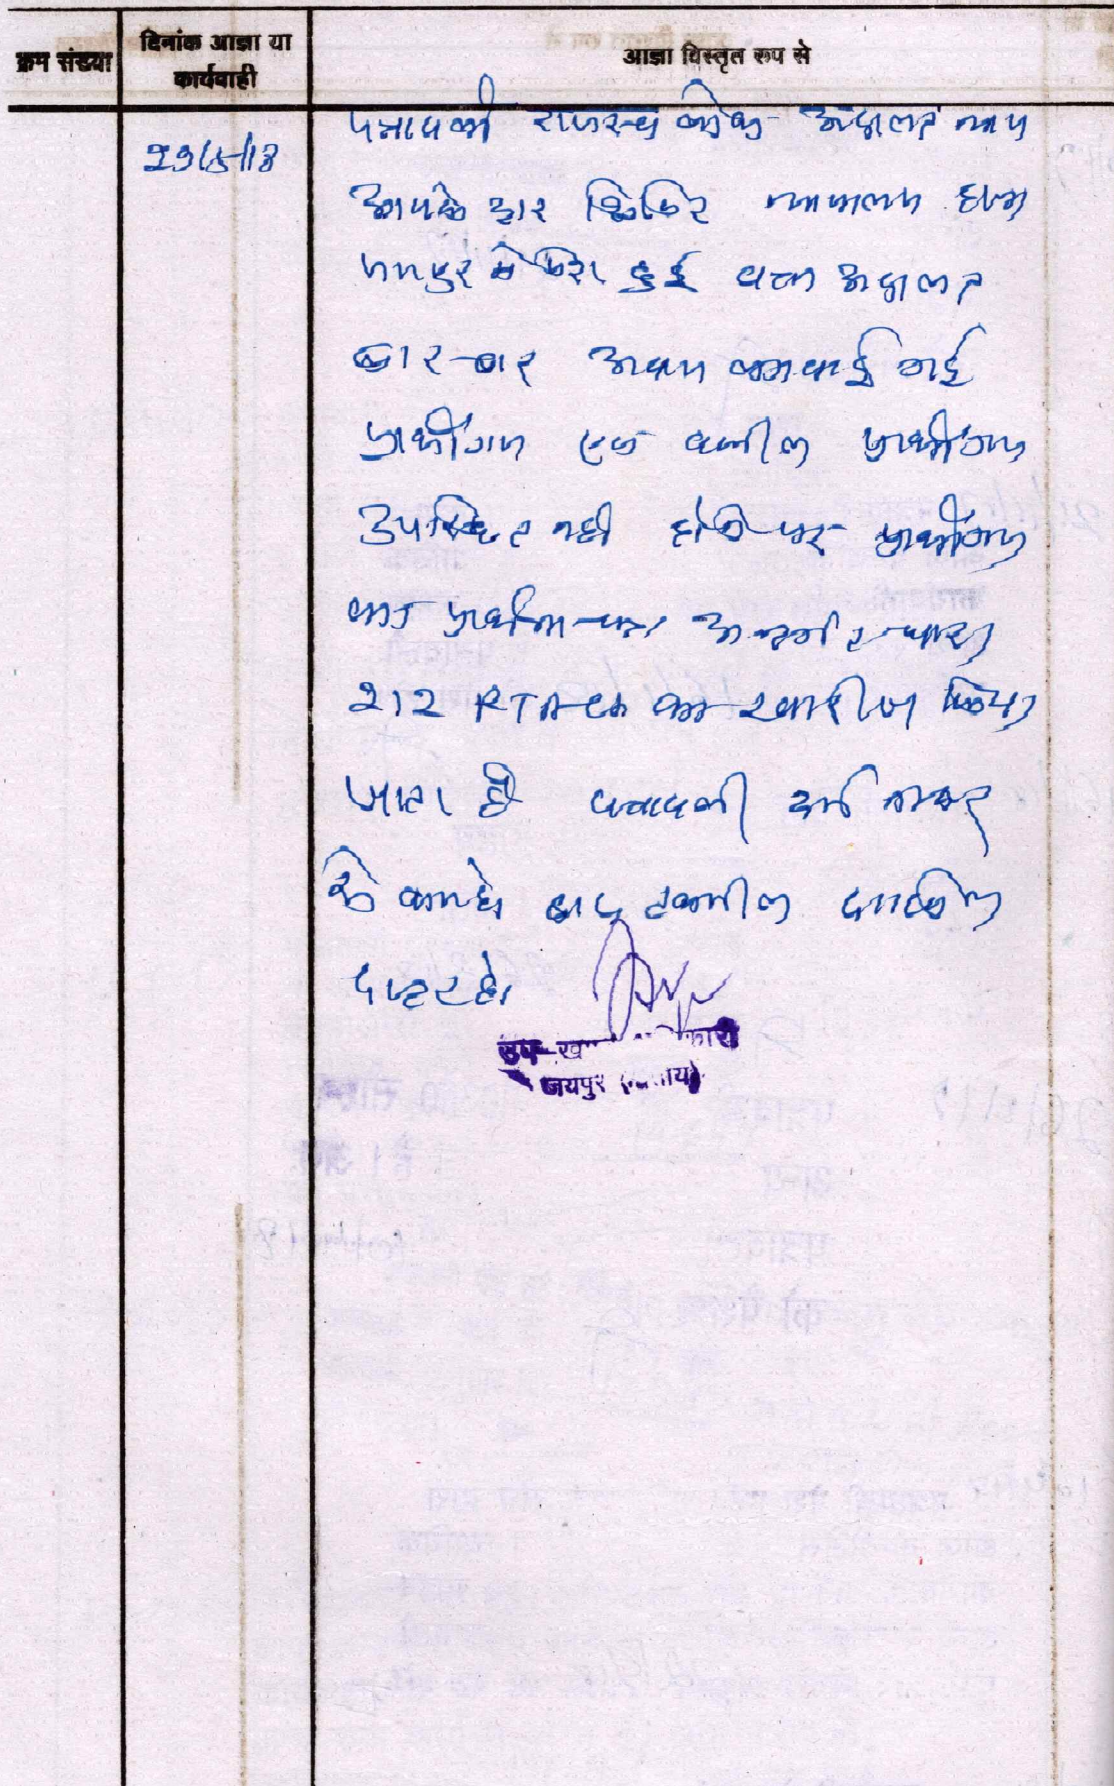 क्रम संख्या
दिनांक आज्ञा या
कार्यवाही
आज्ञा विस्तृत रूप से
पत्रावली राजस्व लोक अदालत न्याय
29/5/18
आपके द्वार शिविर न्यायालय हाजा
जयपुर में पेश हुई वक्त अदालत
बार-बार आवाज लगवाई गई
प्रार्थीगण एवं वकील प्रार्थीगण
उपस्थित नही होने पर प्रार्थीगण
का प्रार्थना-पत्र अन्तर्गत धारा
212 RTA का खारीज किया
जाता है पत्रावली
के बाद तकमील दाखिल
दफ्तर हो
उप-ख कारी
जयपुर